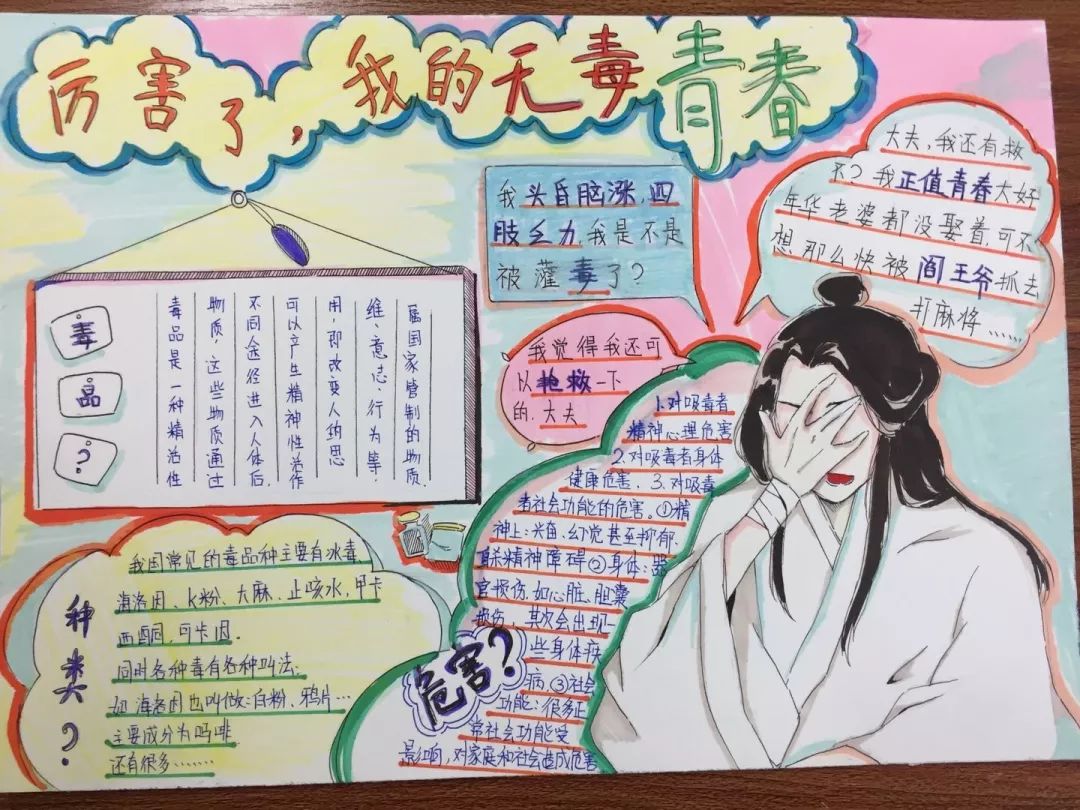 厉害了，我的无毒青春
毒
品
?
毒品是一种精活性
物质，这些物质通过
不同途径进入人体后，
可以产生精神性活作
用，即改变人的思
维、意志，行为等，
属国家管制的物质.
我头昏脑涨，四
肢乏力，我是不是
被灌毒了？
我觉得我还可
以抢救一下
的，大夫
大夫，我还有救
不？我正值青春大好
年华老婆都没娶着，可不
想，那么快被阎王爷抓去
打麻将……
种类？
我国常见的毒品种主要有冰毒
海洛因、K粉、大麻、止咳水，甲卡
西酮，可卡因.
同时各种毒有各种叫法.
如海洛因也叫做：白粉、鸦片…
主要成分为吗啡
还有很多………
危害?
1.对吸毒者
精神心理危害
2.对吸毒者身体
健康危害. 3.对吸毒
者社会功能的危害。①精
神上：兴奋、幻觉甚至抑郁
自杀精神障碍②身体：器
官损伤，如心脏、胆囊
损伤，其次会出现一
些身体疾
病，③社会
功能：很多正
常社会功能受
影响，对家庭和社会造成危害